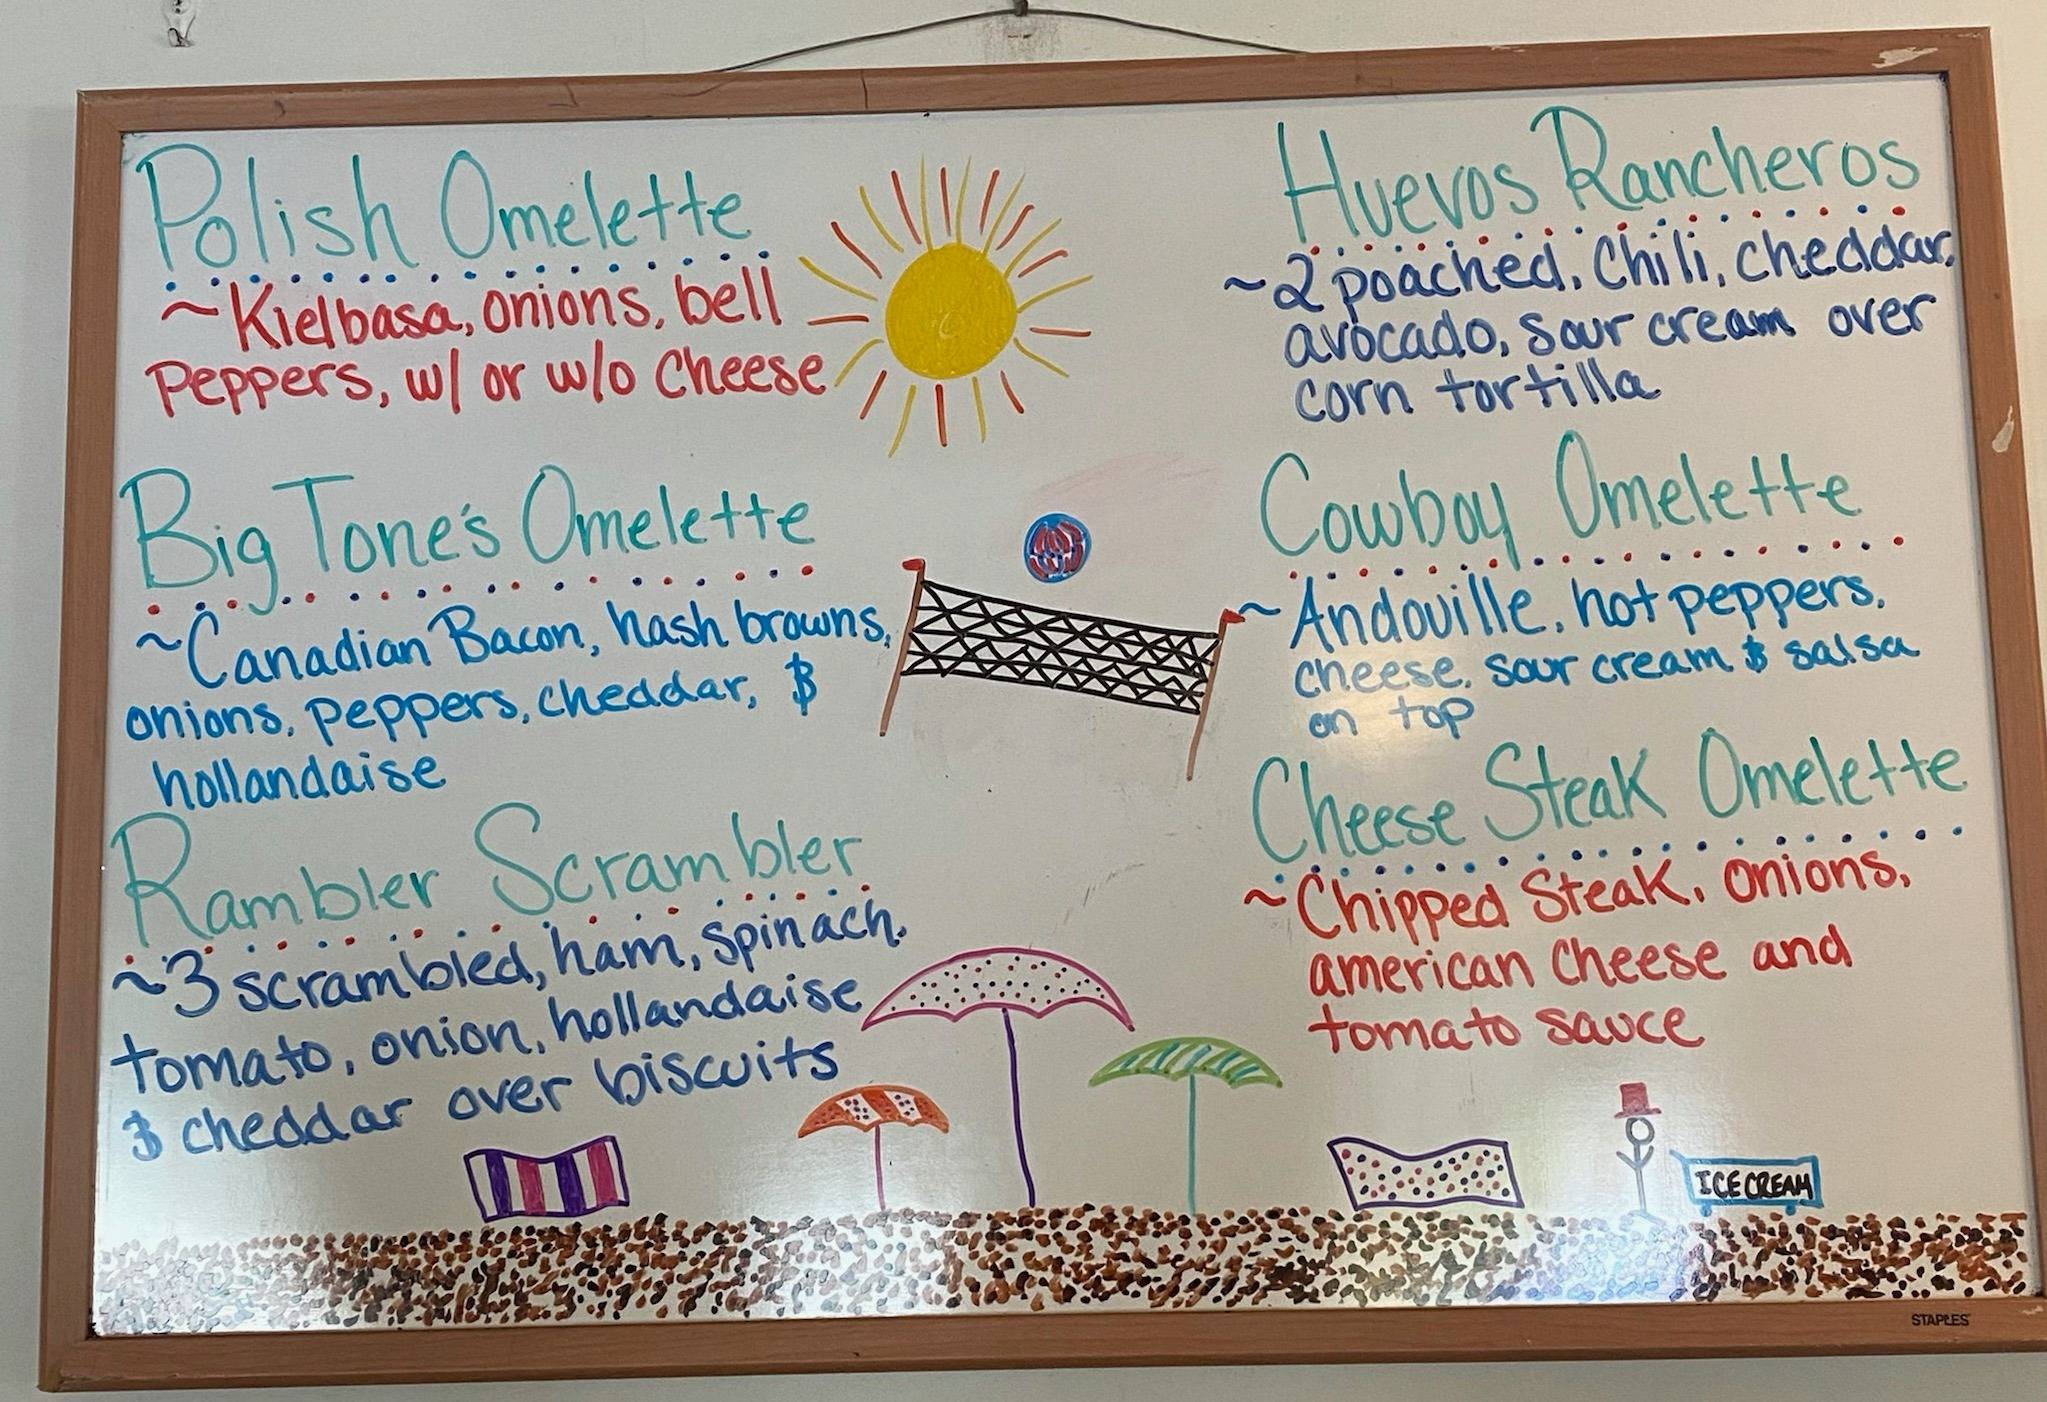 Polish Omelette
~Kielbasa, onions, bell
peppers, w/ or w/o cheese
Big Tone's Omelette
~Canadian Bacon, hash browns,
onions, peppers, cheddar, &
hollandaise
Rambler Scrambler
~3 scrambled, ham, spinach,
tomato, onion, hollandaise
& cheddar over biscuits
Huevos Rancheros
~2 poached, Chili, cheddar,
avocado, sour cream over
corn tortilla
Cowboy Omelette
~Andouille, hot peppers,
cheese, sour cream & salsa
on top
Cheese Steak Omelette
~Chipped Steak, onions,
american cheese and
tomato sauce
ICE CREAM
STAPLES